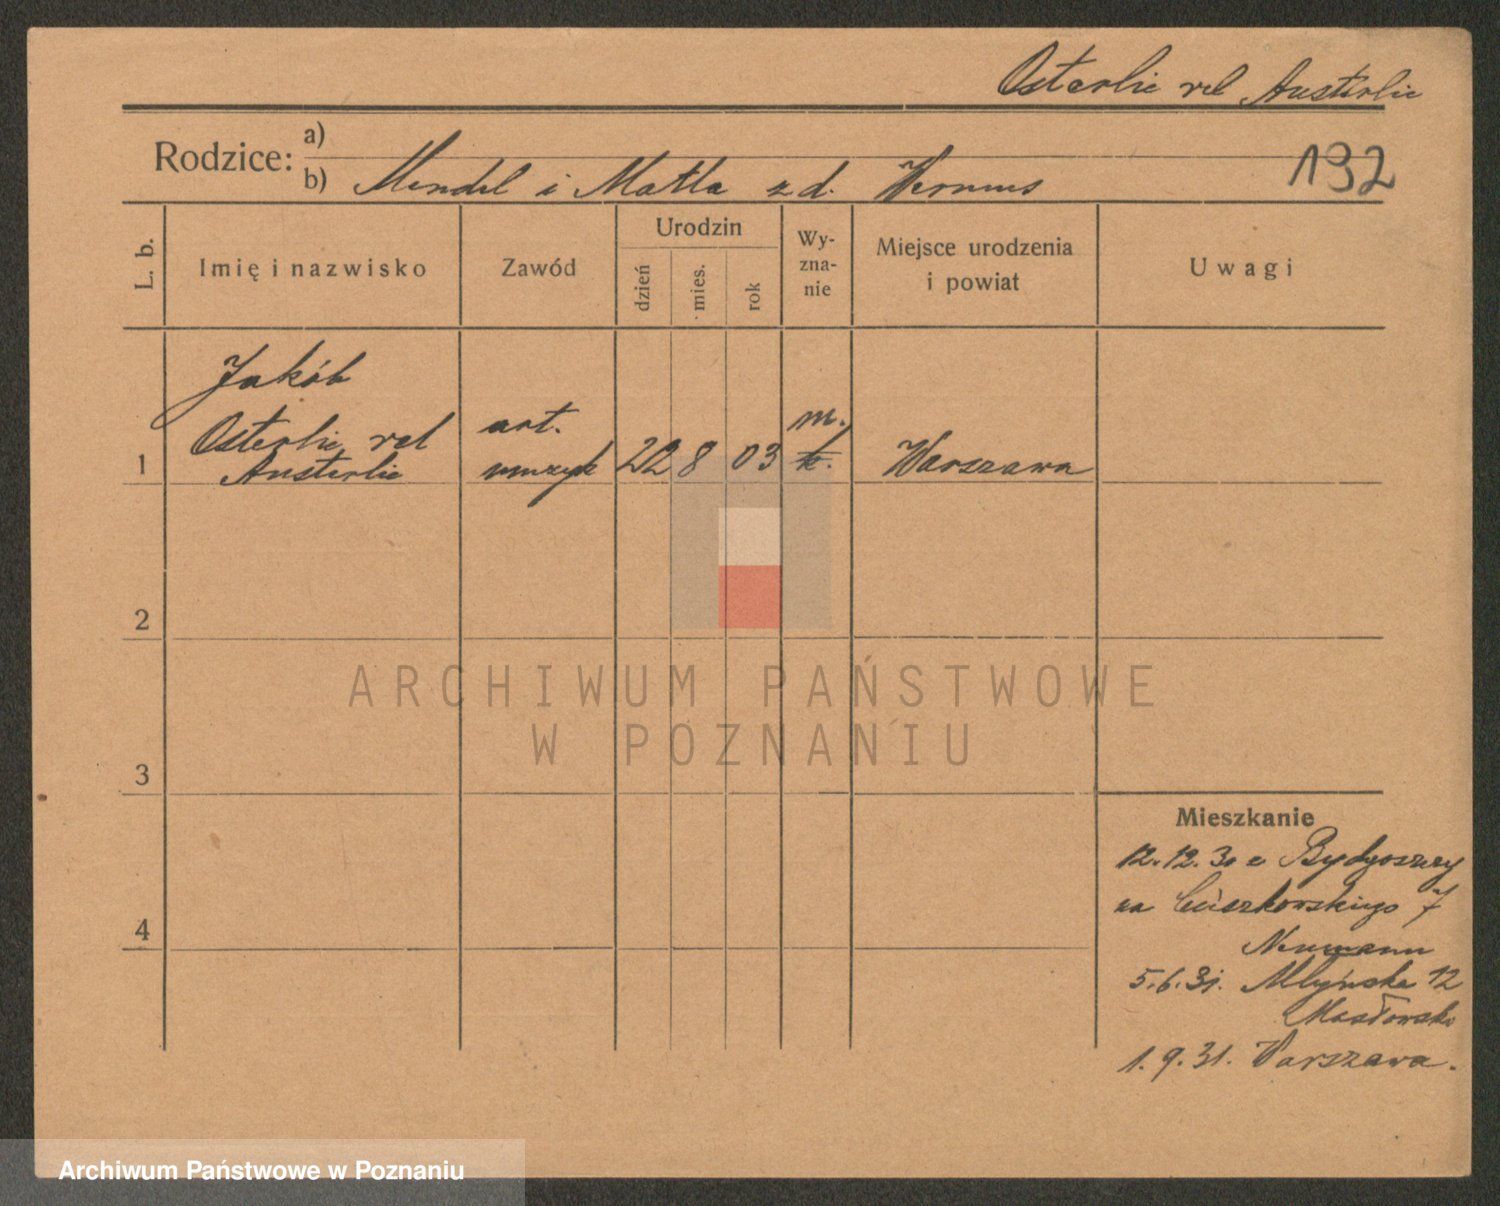 Osterlic vel Austerlic
Rodzice: a)
b) Mendel i Matla z d. Wernus
192
L. b.
Imię i nazwisko
Zawód
Urodzin
dzień
mies.
rok
Wy-
zna-
nie
Miejsce urodzenia
i powiat
Uwagi
Jakób
Osterlic vel
Austerlic
art.
muzyk
1
22 8 03
m.
Warszawa
2
3
4
Mieszkanie
12.12.30 z Bydgoszczy
na Cieszkowskiego 7
Neumann
5.6.31. Młyńska 12
Masłowska
1.9.31. Warszawa.
ARCHIWUM PAŃSTWOWE
W POZNANIU
Archiwum Państwowe w Poznaniu